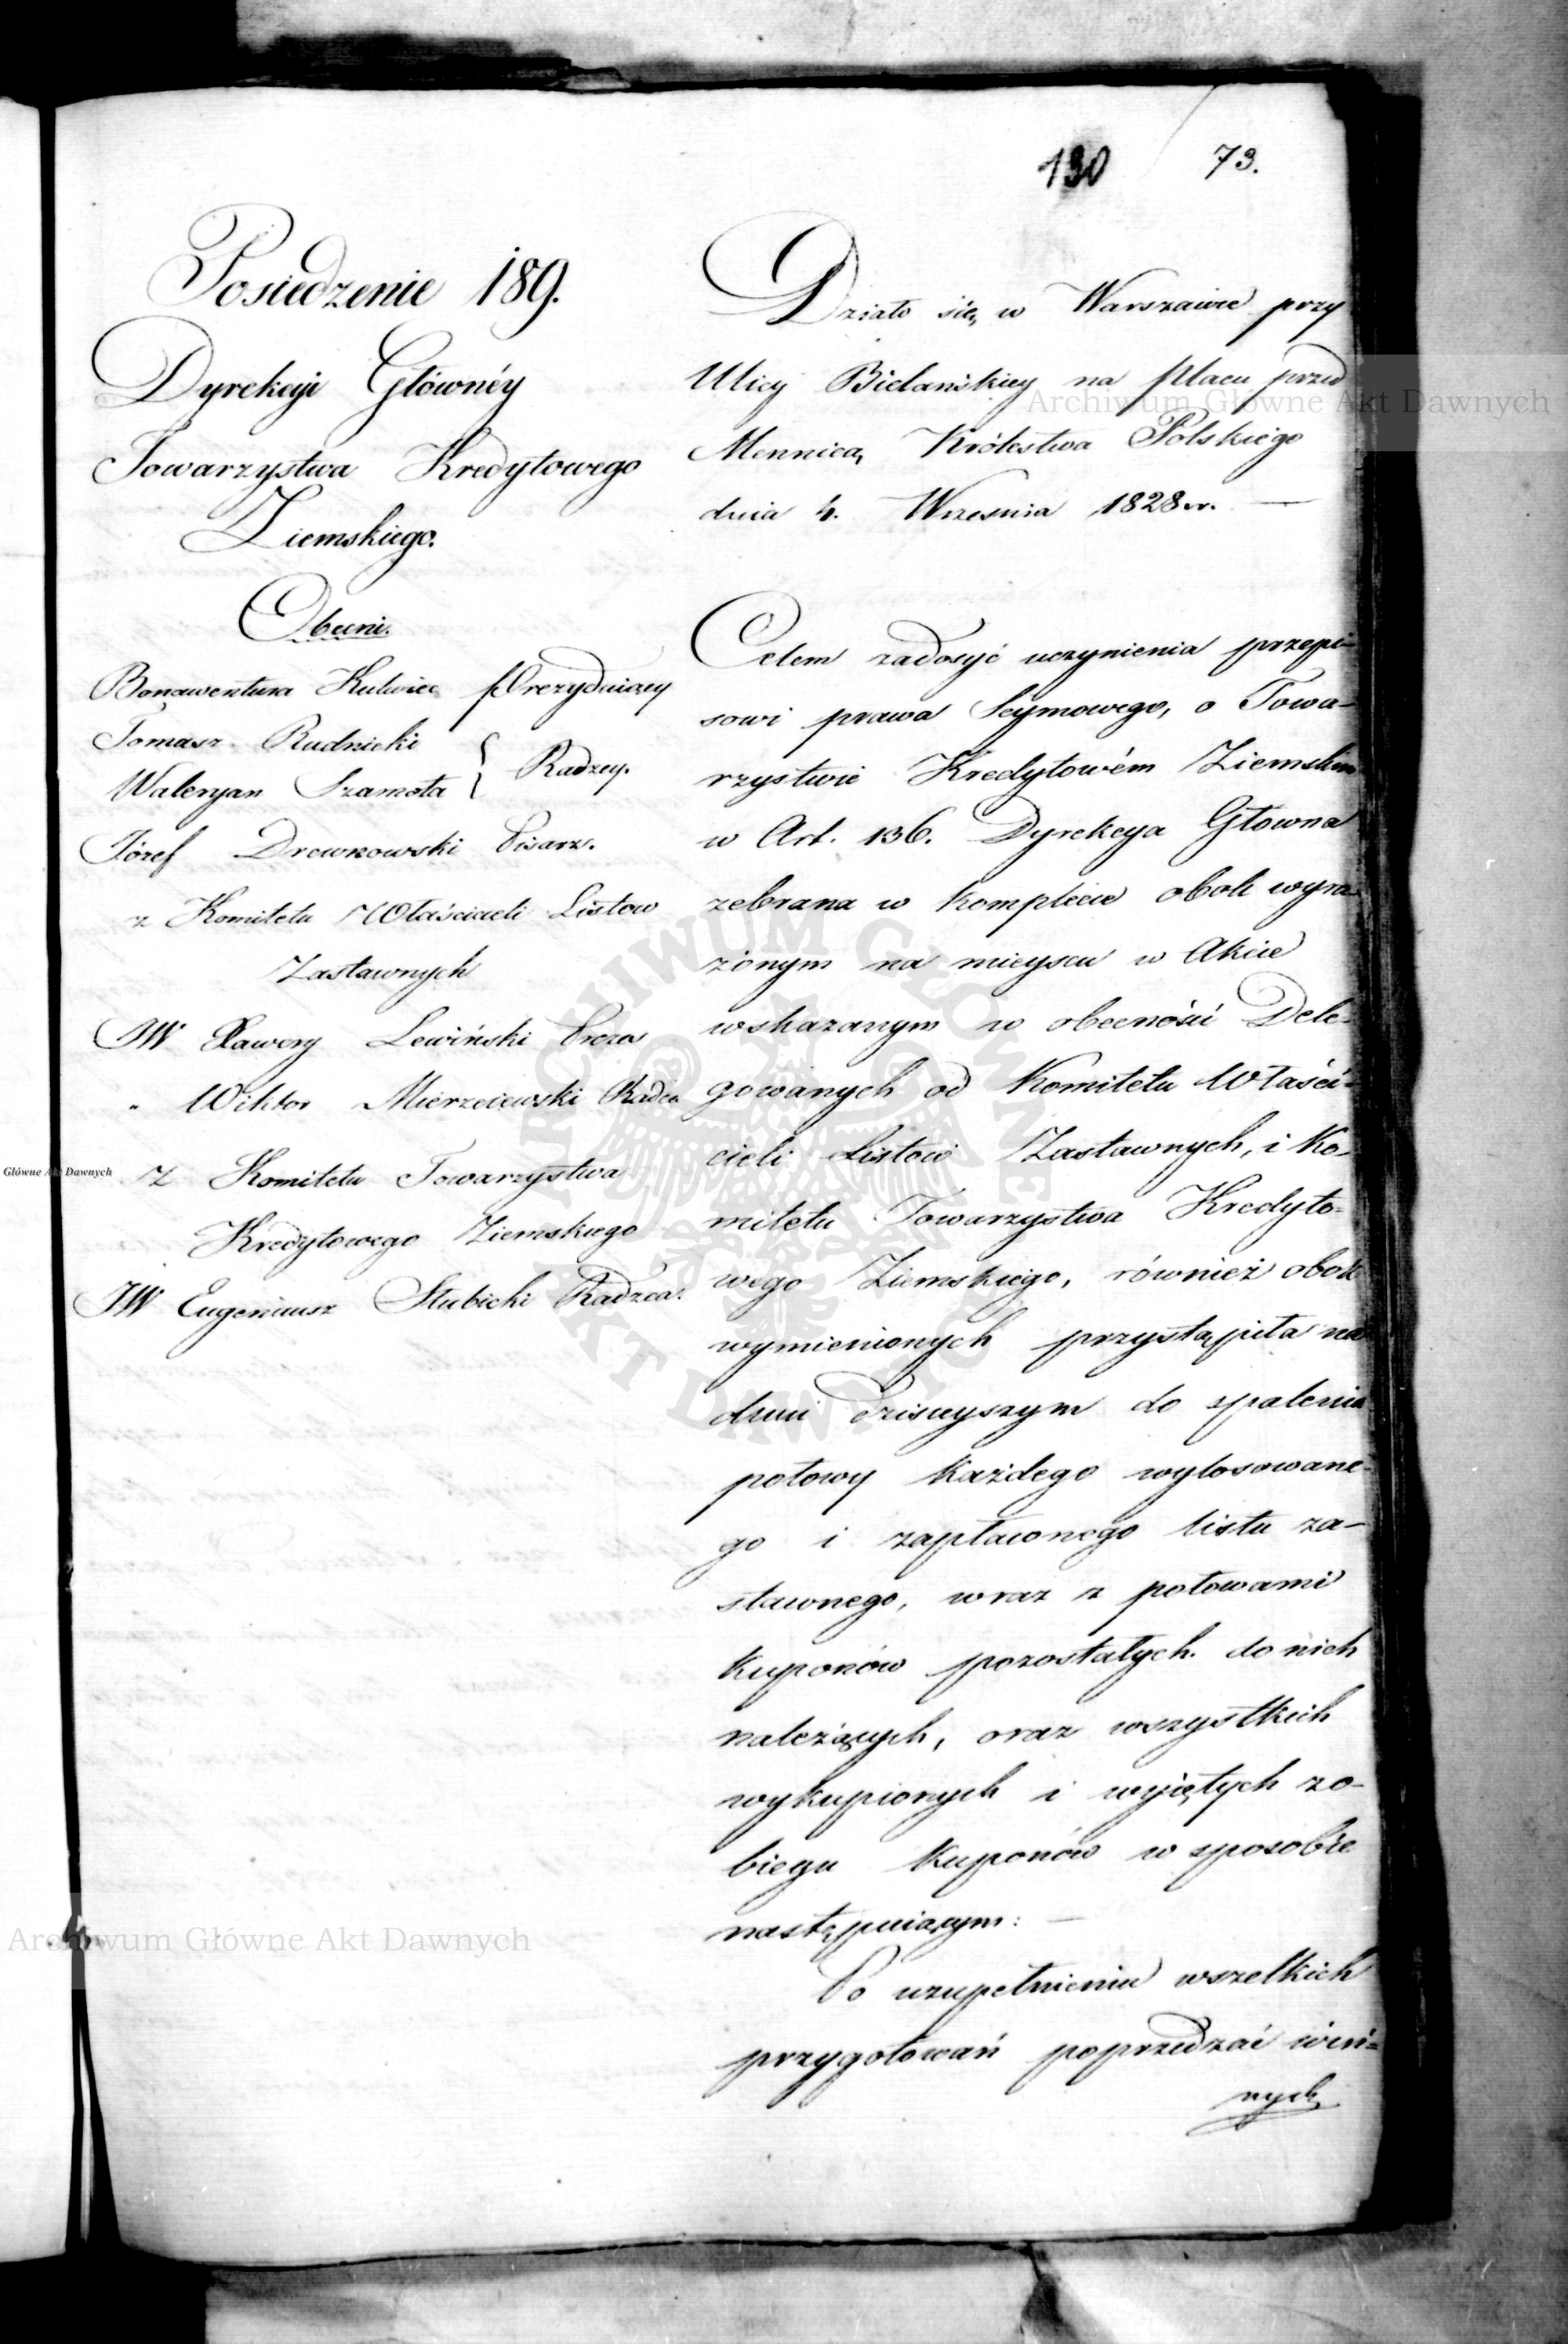 130
73.
Posiedzenie 189.
Dyrekcyi Głównéy
Towarzystwa Kredytowego
Ziemskiego.
Obecni.
Bonawentura Kutwiec Prezyduiący
Tomasz Rudnicki
Waleryan Szamota } Radzcy.
Józef Drewnowski Pisarz.
z Komitetu Właścicieli Listów
Zastawnych
JW Xawery Lewiński Prezes
" Wiktor Mierzeiewski Radca
z Komitetu Towarzystwa
Kredytowego Ziemskiego
JW Eugeniusz Słubicki Radzca.
Działo się w Warszawie przy
Ulicy Bielańskiey na placu przed
Mennicą Królestwa Polskiego
dnia 4. Września 1828 r. —
Celem zadosyć uczynienia przepi-
sowi prawa Seymowego, o Towa-
rzystwie Kredytowém Ziemskim
w Art. 136. Dyrekcya Główna
zebrana w komplecie obok wyra-
żonym na mieyscu w Akcie
wskazanym w obecności Dele-
gowanych od Komitetu Właści-
cieli Listów Zastawnych, i Ko-
mitetu Towarzystwa Kredyto-
wego Ziemskiego, również obok
wymienionych przystąpiła na
dniu dzisieyszym do spalenia
połowy każdego wylosowane-
go i zapłaconego listu za-
stawnego, wraz z połowami
kuponów pozostałych do nich
należących, oraz wszystkich
wykupionych i wyiętych zo-
biegu kuponów w sposobie
następuiącym: —
Po uzupełnieniu wszelkich
przygotowań poprzedzać win-
nych
Archiwum Główne Akt Dawnych
Główne Akt Dawnych
ARCHIWUM GŁÓWNE
AKT DAWNYCH
Archiwum Główne Akt Dawnych